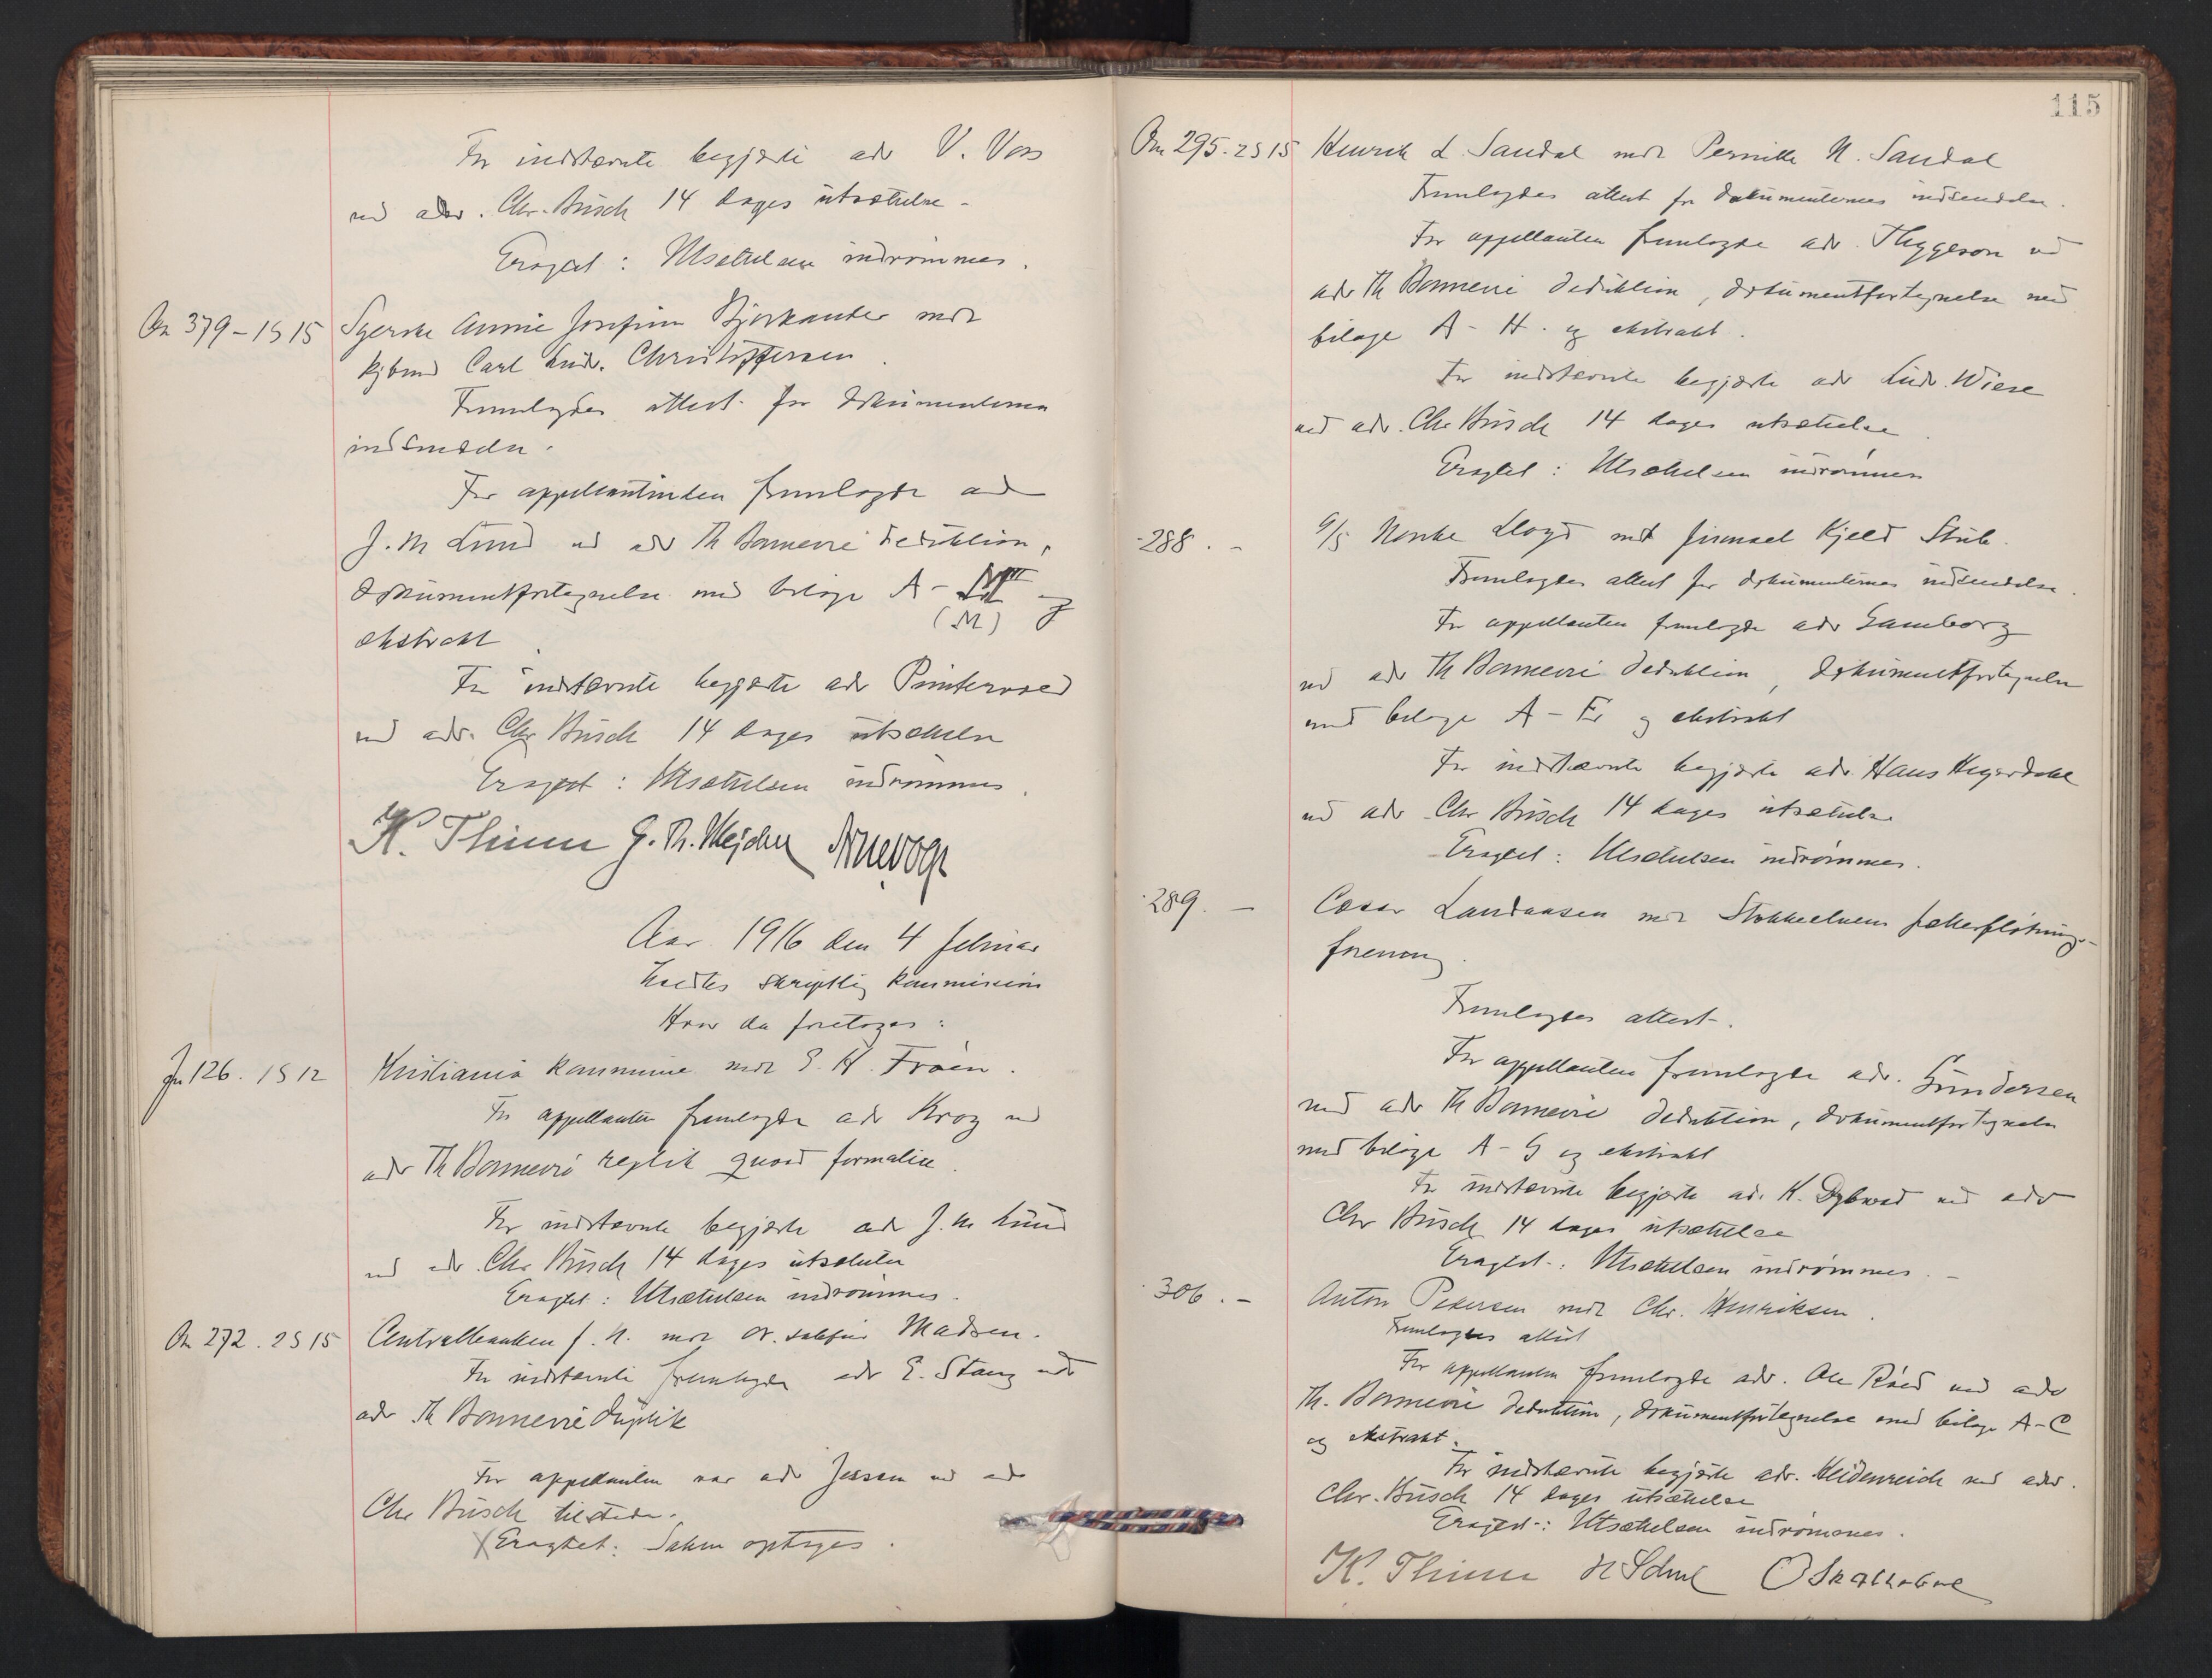 For indstevnte begjærte adv V. Voss
ved adv. Chr. Büsch 14 dages utsættelse -
Eragtet: Utsættelsen indrømmes.
379 - 1S 15 Syerske Annie Josefine Bjørkander mot
kjøbmd Carl Ludv. Christoffersen.
Fremlagdes attest for dokumenternes
indsendelse.
For appellantinden fremlagde adv
J. M. Lund ved adv Th Bonnevie deduktion,
dokumentfortegnelse med bilage A - og
(M)
ekstrakt
For indstevnte begjærte adv Pinterud
ved adv. Chr Büsch 14 dages utsættelse
Eragtet: Utsættelsen indrømmes.
K. Thinn G. Th. Mejdell
Aar 1916 den 4 februar
holdtes skriftlig kommission
Hvor da foretoges:
126. 1S 12 Kristiania kommune mot S. H. Frøen.
For appellanten fremlagde adv Krog ved
adv Th Bonnevie replik quoad formalia.
For indstevnte begjærte adv J. M. Lund
ved adv. Chr Büsch 14 dages utsættelse
Eragtet: Utsættelsen indrømmes.
272. 2S 15 Centralbanken f. N. mot Madsen.
For indstevnte fremlagde adv E. Stang ved
adv Th Bonnevie duplik
For appellanten var adv Jessen ved adv
Chr Büsch tilstede.
Eragtet: Saken optages.
115
295. 2S 15 Henrik L. Sandal mot Pernille N. Sandal
Fremlagdes attest for dokumenternes indsendelse.
For appellanten fremlagde adv. Thyggeson ved
adv Th Bonnevie deduktion, dokumentfortegnelse med
bilage A - H. og ekstrakt.
For indstevnte begjærte adv Ludv. Wiese
ved adv. Chr Büsch 14 dages utsættelse.
Eragtet: Utsættelsen indrømmes
288. - A/S Norske Lloyd mot firmaet Kjeld Stub.
Fremlagdes attest for dokumenternes indsendelse.
For appellanten fremlagde adv Gamborg
ved adv Th Bonnevie deduktion, dokumentfortegnelse
med bilage A - E og ekstrakt
For indstevnte begjærte adv. Hans Heyerdahl
ved adv Chr Büsch 14 dages utsættelse
Eragtet: Utsættelsen indrømmes.
289. - Landaasen mot Stokkeelvens fællesfløtnings-
forening.
Fremlagdes attest.
For appellanten fremlagde adv. Gundersen
ved adv Th Bonnevie deduktion, dokumentfortegnelse
med bilage A - G og ekstrakt
For indstevnte begjærte adv. K. Dybwad ved adv
Chr Büsch 14 dages utsættelse
Eragtet: Utsættelsen indrømmes. -
306. - Anton Pedersen mot Chr. Henriksen.
Fremlagdes attest
For appellanten fremlagde adv. Ole Røed ved adv
Th. Bonnevie deduktion, dokumentfortegnelse med bilage A - C
og ekstrakt.
For indstevnte begjærte adv. Heidenreich ved adv.
Chr. Büsch 14 dages utsættelse
Eragtet: Utsættelsen indrømmes.
K. Thinn